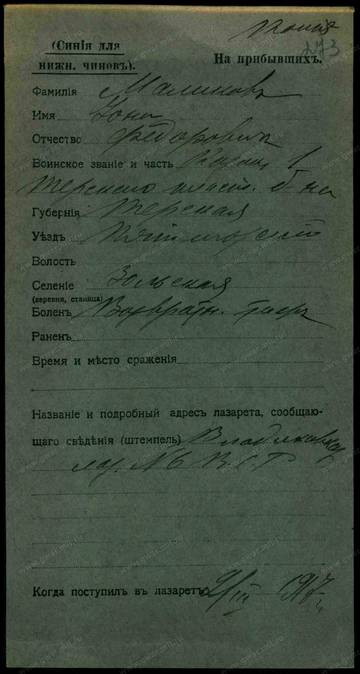 копія
273
(Синія для
нижн. чиновъ).
На прибывшихъ.
Фамилія Малиновъ
Имя
Отчество Федоровичъ
Воинское званіе и часть Казакъ 1
Терскаго пласт. б-на
Губернія Терская
Уѣздъ
Волость
Селеніе Зольская
(деревня, станица)
Боленъ Возвратн. тифъ
Раненъ
Время и мѣсто сраженія
Названіе и подробный адресъ лазарета, сообщаю-
щаго свѣдѣнія (штемпель) Владикавказ
лаз. №6 В.С.Г.
Когда поступилъ въ лазаретъ 9/III 1917 г.